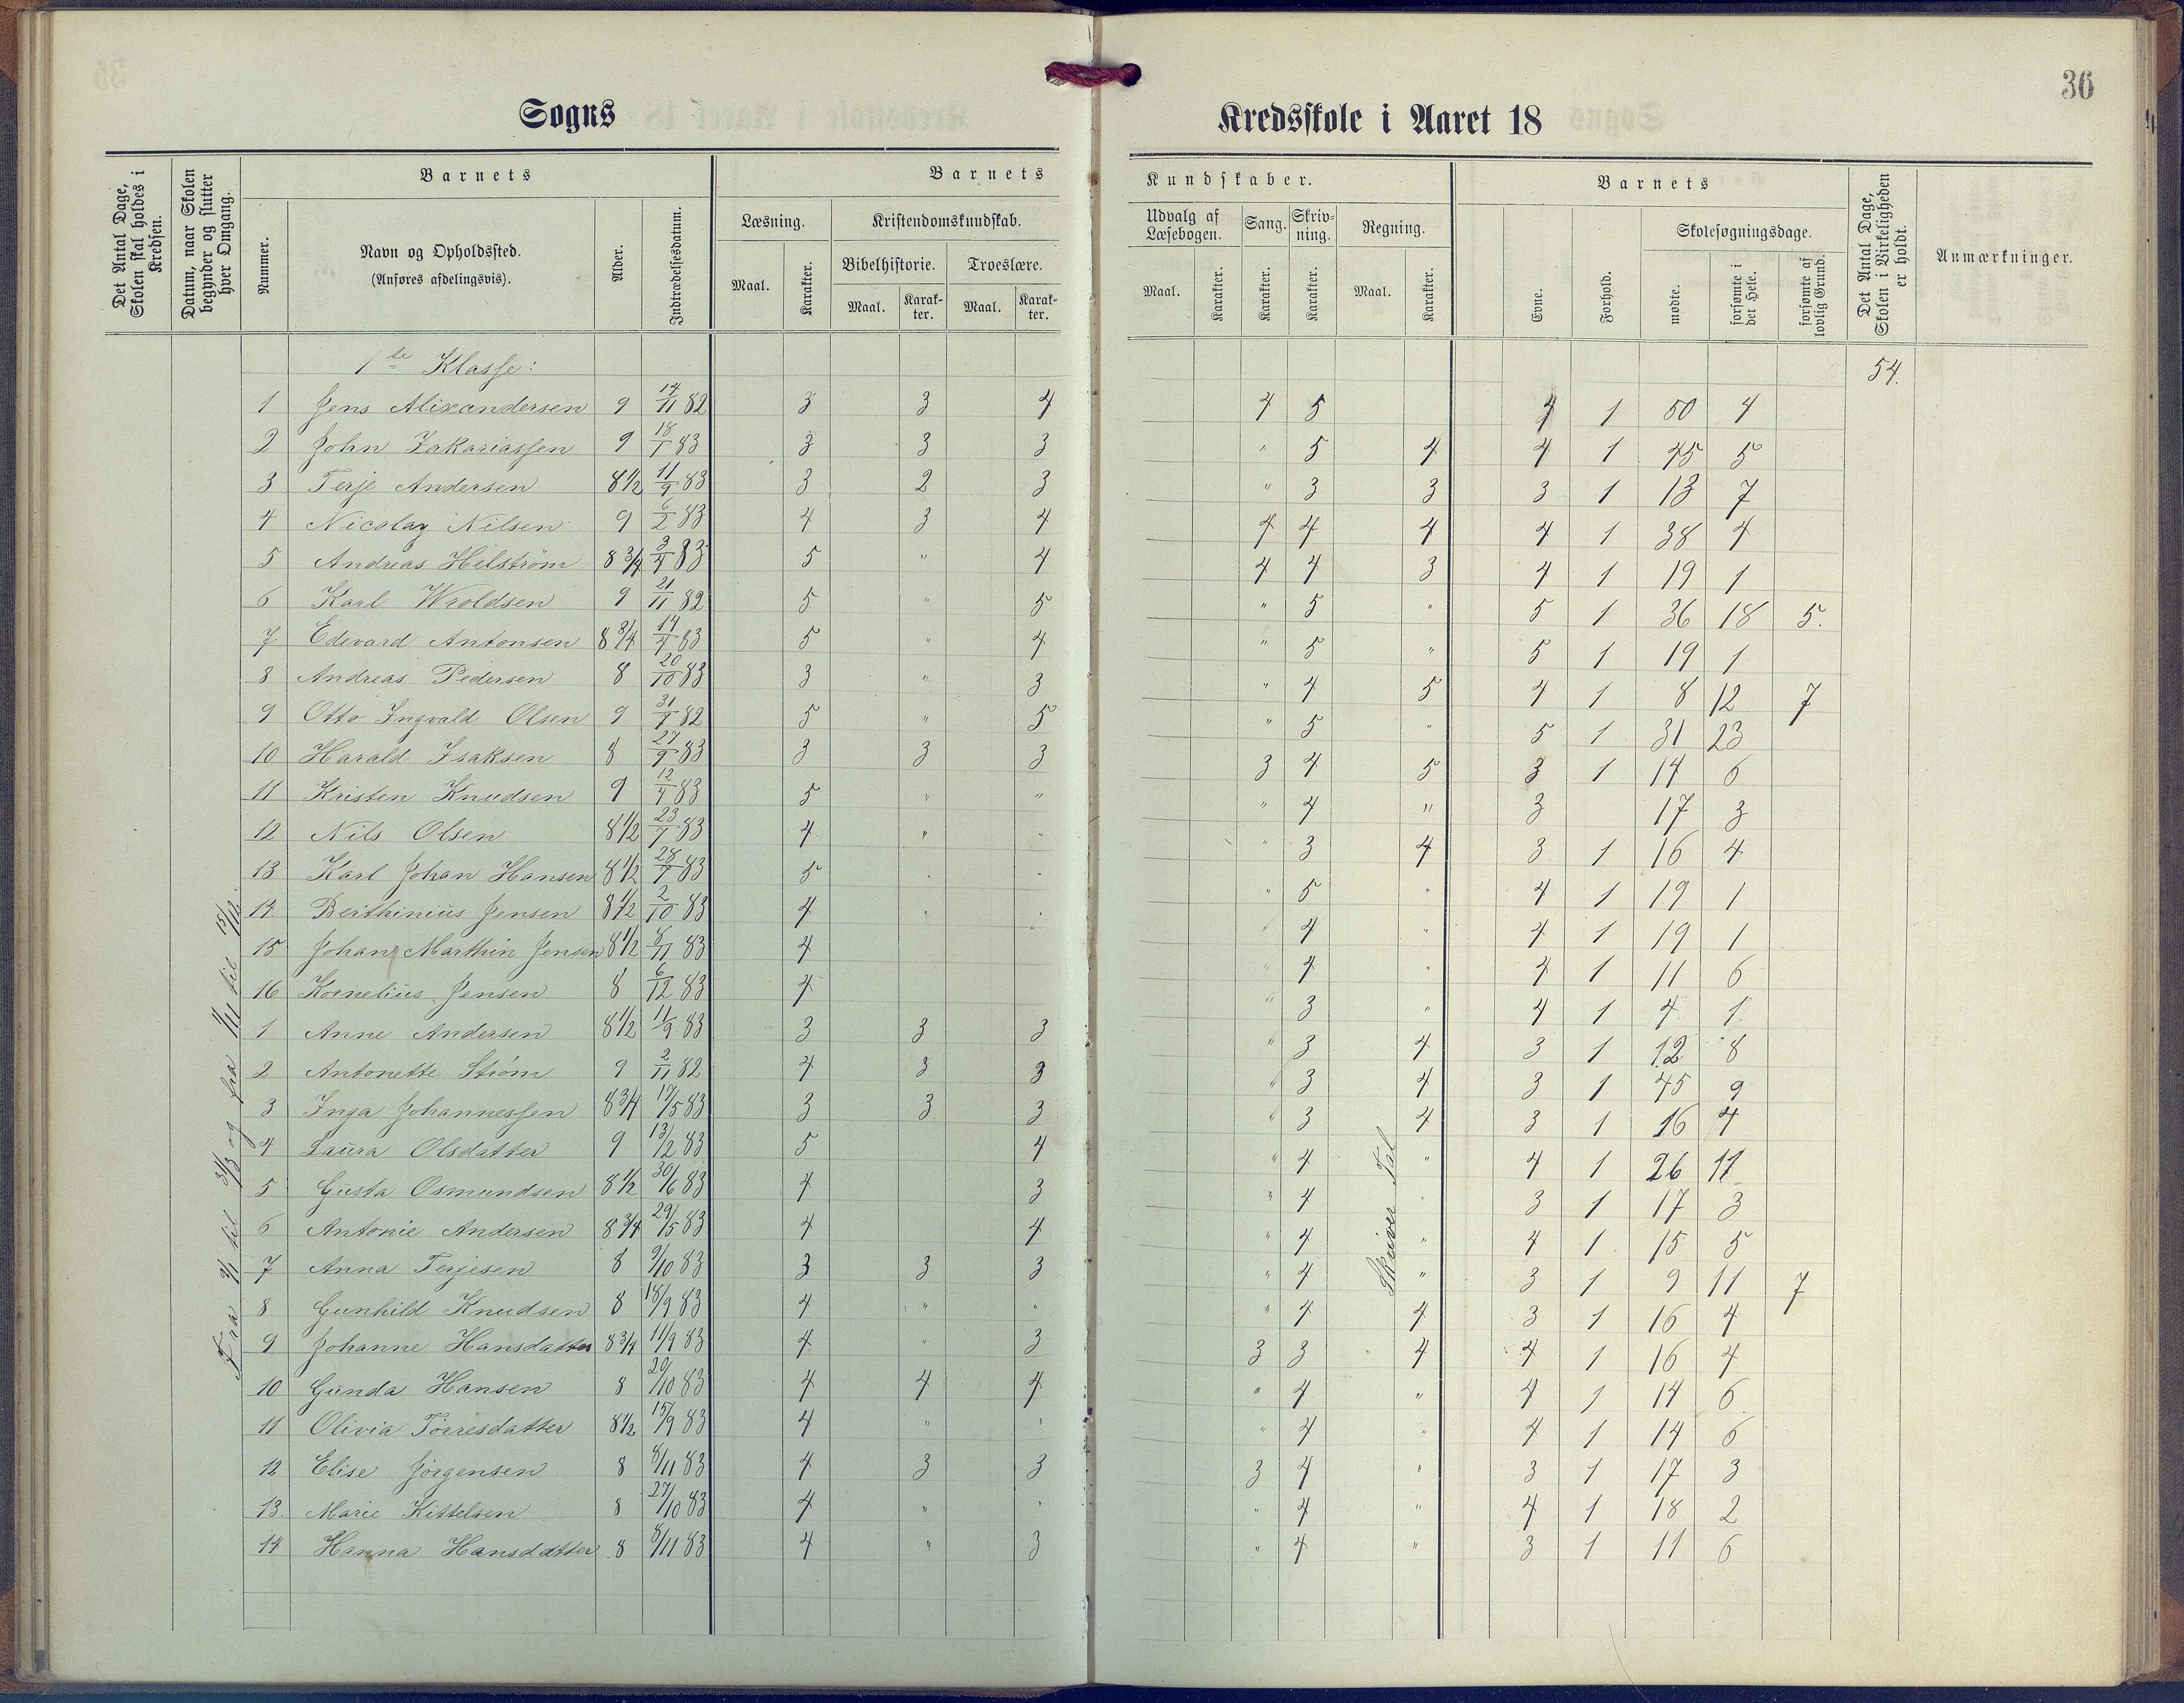 36
Sogns Kredsskole i Aaret 18
Det Antal Dage, Skolen skal holdes i Kredsen.
Datum, naar Skolen begynder og slutter hver Omgang.
Barnets
Nummer.
Navn og Opholdssted.
(Anføres afdelingsvis).
Alder.
Indtrædelsesdatum.
Barnets Kundskaber.
Læsning.
Maal. Karakter.
Kristendomskundskab.
Bibelhistorie. Troeslære.
Maal. Karakter. Maal. Karakter.
Udvalg af Læsebogen.
Maal. Karakter.
Sang. Karakter.
Skrivning. Karakter.
Regning.
Maal. Karakter.
Barnets
Evne. Forhold.
Skolesøgningsdage.
mødte. forsømte i det Hele. forsømte af lovlig Grund.
Det Antal Dage, Skolen i Virkeligheden er holdt.
Anmærkninger.
1ste Klasse: 54.
1 Jens Alixandersen 9 14/11 82 3 3 4 4 5 4 1 50 4
2 John Zakariassen 9 18/1 83 3 3 3 " 5 4 4 1 45 5
3 Terje Andersen 8 1/2 11/9 83 3 2 3 " 3 3 3 1 13 7
4 Nicolay Nilsen 9 6/2 83 4 3 4 4 4 4 4 1 38 4
5 Andreas Helstrøm 8 3/4 3/4 83 5 " 4 4 4 3 4 1 19 1
6 Karl Wroldsen 9 21/11 82 5 " 5 " 5 " 5 1 36 18 5.
7 Edevard Antonsen 8 3/4 14/4 83 5 " 4 " 5 " 5 1 19 1
8 Andreas Pedersen 8 20/10 83 3 " 3 " 4 5 4 1 8 12 7
9 Otto Ingvald Olsen 9 82 5 " 5 " 5 " 5 1 31 23
10 Harald Isaksen 8 27/9 83 3 3 3 3 4 5 3 1 14 6
11 Kristen Knudsen 9 12/4 83 5 " " " 4 " 3 17 3
12 Nils Olsen 8 1/2 23/7 83 4 " " " 3 4 3 1 16 4
13 Karl Johan Hansen 8 1/2 28/7 83 5 " " " 5 " 4 1 19 1
14 Berthinius Jensen 8 1/2 2/10 83 4 " " " 4 " 4 1 19 1
15 Johan Marthin Jensen 8 1/2 8/11 83 4 " 4 " 4 1 11 6
16 Kornelius Jensen 8 6/12 83 4 " 3 " 4 1 4 1
1 Anne Andersen 8 1/2 11/9 83 3 3 3 " 3 4 3 1 12 8
2 Antonette Strøm 9 2/11 82 4 3 3 " 3 4 3 1 45 9
3 Inga Johannessen 8 3/4 17/5 83 3 3 3 " 3 4 3 1 16 4
4 Laura Olsdatter 9 13/2 83 5 4 " 4 " 4 1 26 11
5 Gusta Osmundsen 8 1/2 30/6 83 4 3 " 4 " 3 1 17 3
6 Antonie Andersen 8 3/4 29/5 83 4 4 " 4 " 4 1 15 5
7 Anna Terjesen 8 9/10 83 3 3 3 " 4 " 3 1 9 11 7
8 Gunhild Knudsen 8 18/9 83 4 " " " 4 4 3 1 16 4
9 Johanne Hansdatter 8 3/4 11/9 83 4 " 3 3 3 4 4 1 16 4
10 Gunda Hansen 8 20/10 83 4 4 4 " 4 " 4 1 14 6
11 Olivia Tørresdatter 8 1/2 15/9 83 4 " " " 4 " 4 1 14 6
12 Elise Jørgensen 8 8/11 83 4 3 3 3 4 " 3 1 17 3
13. Marie Kittelsen 8 27/10 83 4 " " " 4 " 4 1 18 2
14 Hanna Hansdatter 8 8/11 83 4 " 3 " 4 " 3 1 11 6
Fra 9/1 til 31/3 og fra 11/11 til 15/12.
Skriver Tal